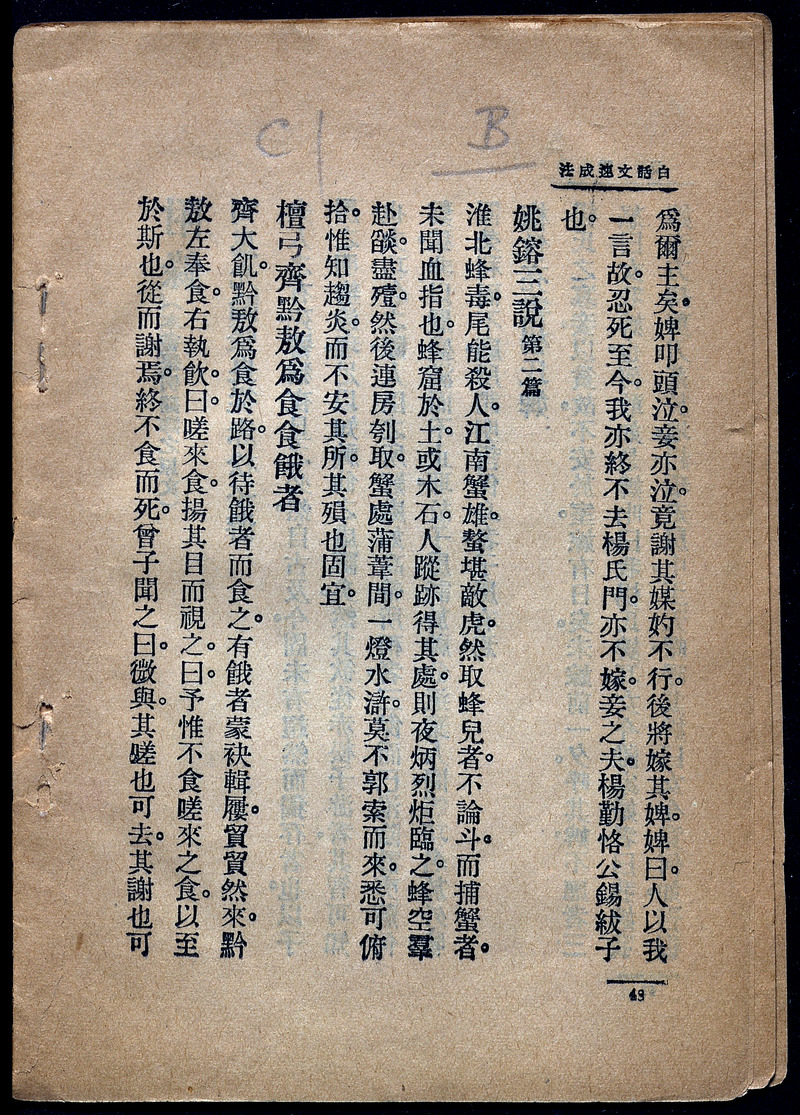 C |
B
白話文速成法
爲爾主矣。婢叩頭泣。妾亦泣。竟謝其媒妁不行。後將嫁其婢。婢曰。人以我
一言。故忍死至今。我亦終不去楊氏門。亦不嫁。妾之夫。楊勤恪公錫紱子
也。
姚鎔三說 第二篇
淮北蜂毒。尾能殺人。江南蟹雄。螯堪敵虎。然取蜂兒者。不論斗。而捕蟹者。
未聞血指也。蜂窟於土。或木石。人蹤跡得其處。則夜炳烈炬臨之。蜂空羣
赴燄。盡殪。然後連房刳取。蟹處蒲葦間。一燈水滸。莫不郭索而來。悉可俯
拾。惟知趨炎。而不安其所。其殞也固宜。
檀弓齊黔敖爲食食餓者
齊大飢。黔敖爲食於路。以待餓者而食之。有餓者蒙袂輯屨。貿貿然來。黔
敖左奉食。右執飲。曰。嗟來食。揚其目而視之。曰。予惟不食嗟來之食。以至
於斯也。從而謝焉。終不食而死。曾子聞之。曰。微與。其嗟也可去。其謝也可
49